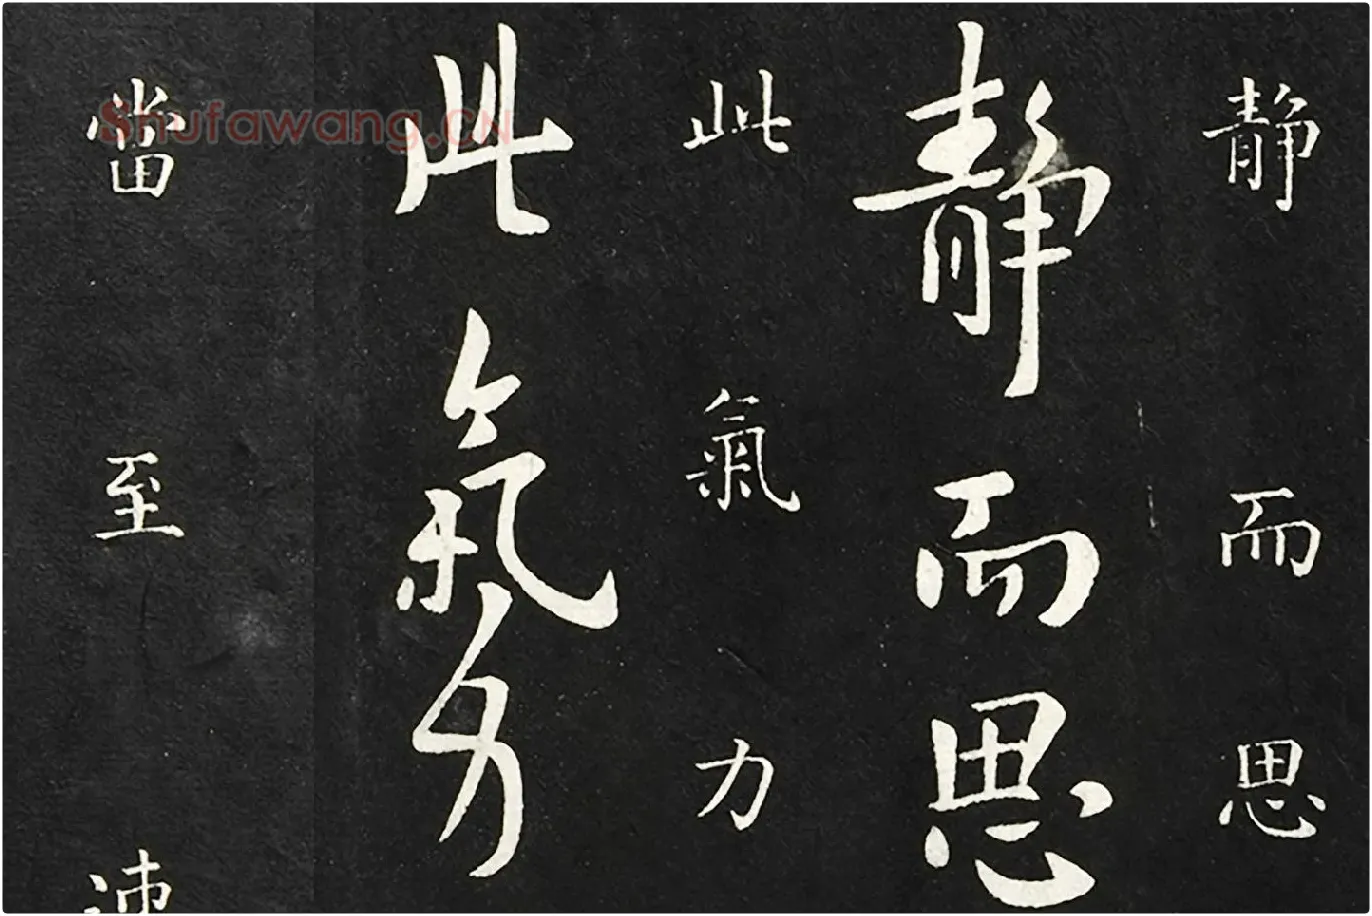 静而思
静而思
此氣力
此氣力
當至
Shufawang.CN